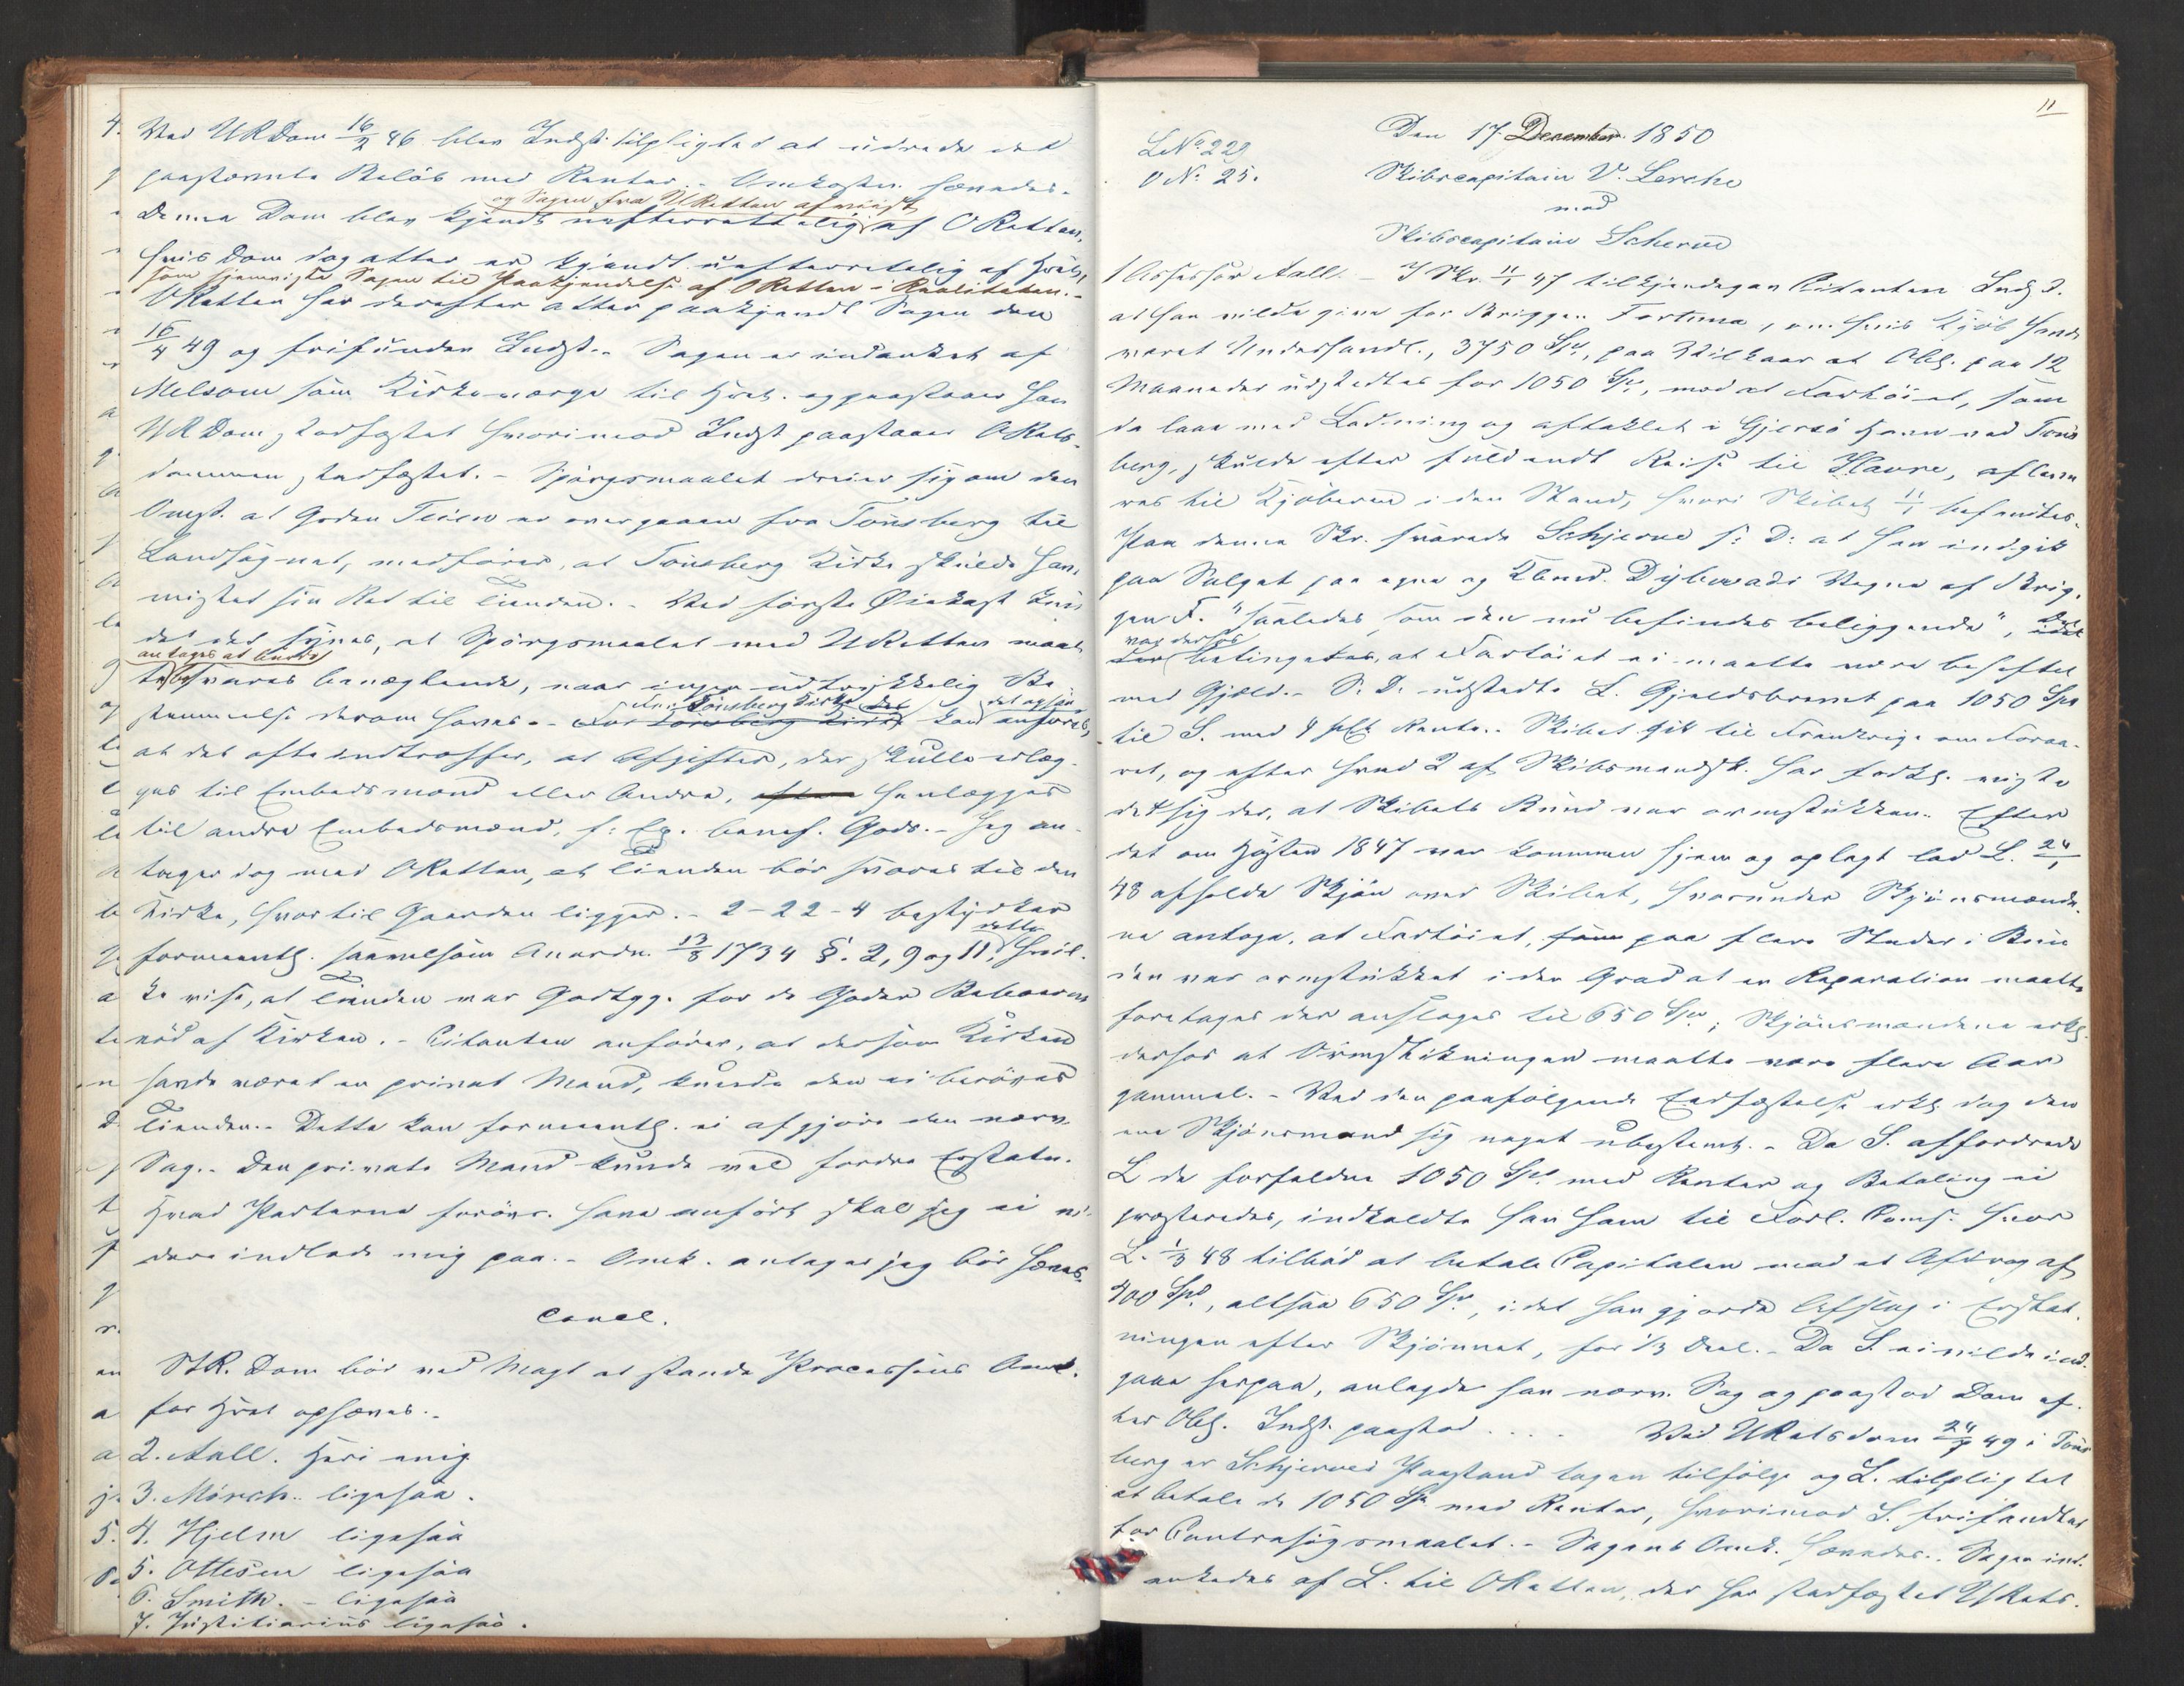 4. Ved URDom 16/2 46 blev Indst. tilpligtet at udrede det
paastevnte Beløb med Renter. - Omkostn. hævedes.
og Sagen fra URetten afviist
Denne Dom blev kjendt uefterrettelig af ORetten,
hvis Dom dog atter er kjendt uefterretelig af Høist,
som hjemviste Sagen til Paakjendelse af ORetten i Realiteten. -
ORetten har derefter atter paakjendt Sagen den
16/4 49 og frifunden Indst. - Sagen er indanket af
Melsom som Kirkeværge til Høist. og paastaaer han
URDom stadfæstet hvorimod Indst paastaaer ORets-
dommen stadfæstet. - Spørgsmaalet dreier sig om den
Omst. at Godset Teien er overgaaen fra Tønsberg til
Landsognet, medfører, at Tønsberg Kirke skulde have
mistet sin Ret til Tienden. - Ved første Øiekast kun-
de det synes, at Spørgsmaalet med URetten maat-
antages at burde
te besvares benægtende, naar ingen udtrykkelig Be
stemmelse derom haves. - For Tønsberg Kirke kan anføres,
at det ofte indtræffer, at Afgifter, der skulle erlæg-
ges til Embedsmænd eller Andre, henlægges
til andre Embedsmænd, f: Ex. benef. Gods. - Jeg an-
tager dog med ORetten, at Tienden bør svares til den
Kirke, hvortil Gaarden ligger. - 2-22-4 bestyrker
dette
formentl. saavelsom Anordn. 13/8 1734 §. 2, 9 og 11, hvil-
ke vise, at Tienden var Godtgj. for de Goder Beboerne
nød af Kirken. - Citanten anfører, at dersom Kirken
havde været en privat Mand, kunde den ei berøves
Tienden. - Dette kan formentl. ei afgjøre den nærv.
Sag. - Den private Mand kunde vel fordre Erstatn.
Hvad Parterne forøvr. have anført skal jeg ei vi-
dere indlade mig paa. - Omk. antager jeg bør hæves.
Concl.
StR. Dom bør ved Magt at stande Processens Omk.
for Høist ophæves. -
2. Aall. Heri enig
3. Mørch. ligesaa.
4. Hjelm ligesaa
5. Ottesen ligesaa
6. Smith. - ligesaa
7. Justitiarius ligesaa.
11
Den 17 December 1850
L No 229
O No 25.
Skibscapitain V. Lerche
mod
Skibscapitain Scherve
1 Assessor Aall. - I Skr. 11/1 47 tilkjendegav Citanten Indst.
at han vilde give for Briggen Fortuna, om hvis Kjøb havde
været Underhandl., 3750 Spd, paa Vilkaar at Obl. paa 12
Maaneder udstedtes for 1050 Spd, mod at Fartøiet, som
da laae med Ladning og aftaklet i Gjersø Havn ved Tøns
berg, skulde efter fuldendt Reise til Havre, afleve
res til Kjøberen i den Stand, hvori Skibet 11/1 befandtes.
Paa denne Skr. svarede Schjerve s: D: at han indgik
paa Salget paa egne og Kbmd. Dybwads Vegne af Brig-
gen F. "saaledes som den nu befindes beliggende",
var derfor
betinget, at Fartøiet ei maatte være behæftet
med Gjæld. - S. D. udstedte L. Gjældsbrevet paa 1050 Spd
til S. med 4 pCt Rente. - Skibet gik til Frankrige om Foraa-
ret, og efter hvad 2 af Skibsmandsk. har forkl. viste
det sig der, at Skibets Bund var ormstukken. Efter
det om Høsten 1847 var kommen hjem og oplagt lod L. 24/1
48 afholde Skjøn over Skibet, hvorunder Skjønsmænde-
ne antoge, at Fartøiet, paa flere Steder i Bun
den var ormstukket i den Grad at en Reparation maatte
foretages der ansloges til 650 Spd; Skjønsmændene erkl.
derhos at Ormstikningen maatte være flere Aar
gammel. - Ved den paafølgende Edfæstelse erkl dog den
ene Skjønsmand sig noget ubestemt. - Da S. affordrede
L de forfaldne 1050 Spd med Renter og Betaling ei
præsteredes, indkaldte han ham til Forl. Coms. hvor
L. 1/3 48 tilbød at betale Capitalen med et Afdrag af
400 Spd, altsaa 650 Spd, idet han gjorde Afslag i Erstat-
ningen efter Skjønnet, for 1/3 Deel. - Da S. ei vilde ind-
gaae herpaa, anlagde han nærv. Sag og paastod Dom ef-
ter Obl. Indst. paastod . . . . Ved URetsdom 24/7 49 i Tøns
berg er Schjerves Paastand tagen tilfølge og L. tilpligtet
at betale de 1050 Spd med Renter, hvorimod S. frifandtes
for Contrasøgsmaalet. - Sagens Omk. hævedes. - Sagen ind-
ankedes af L. til ORetten, der har stadfæstet URets-